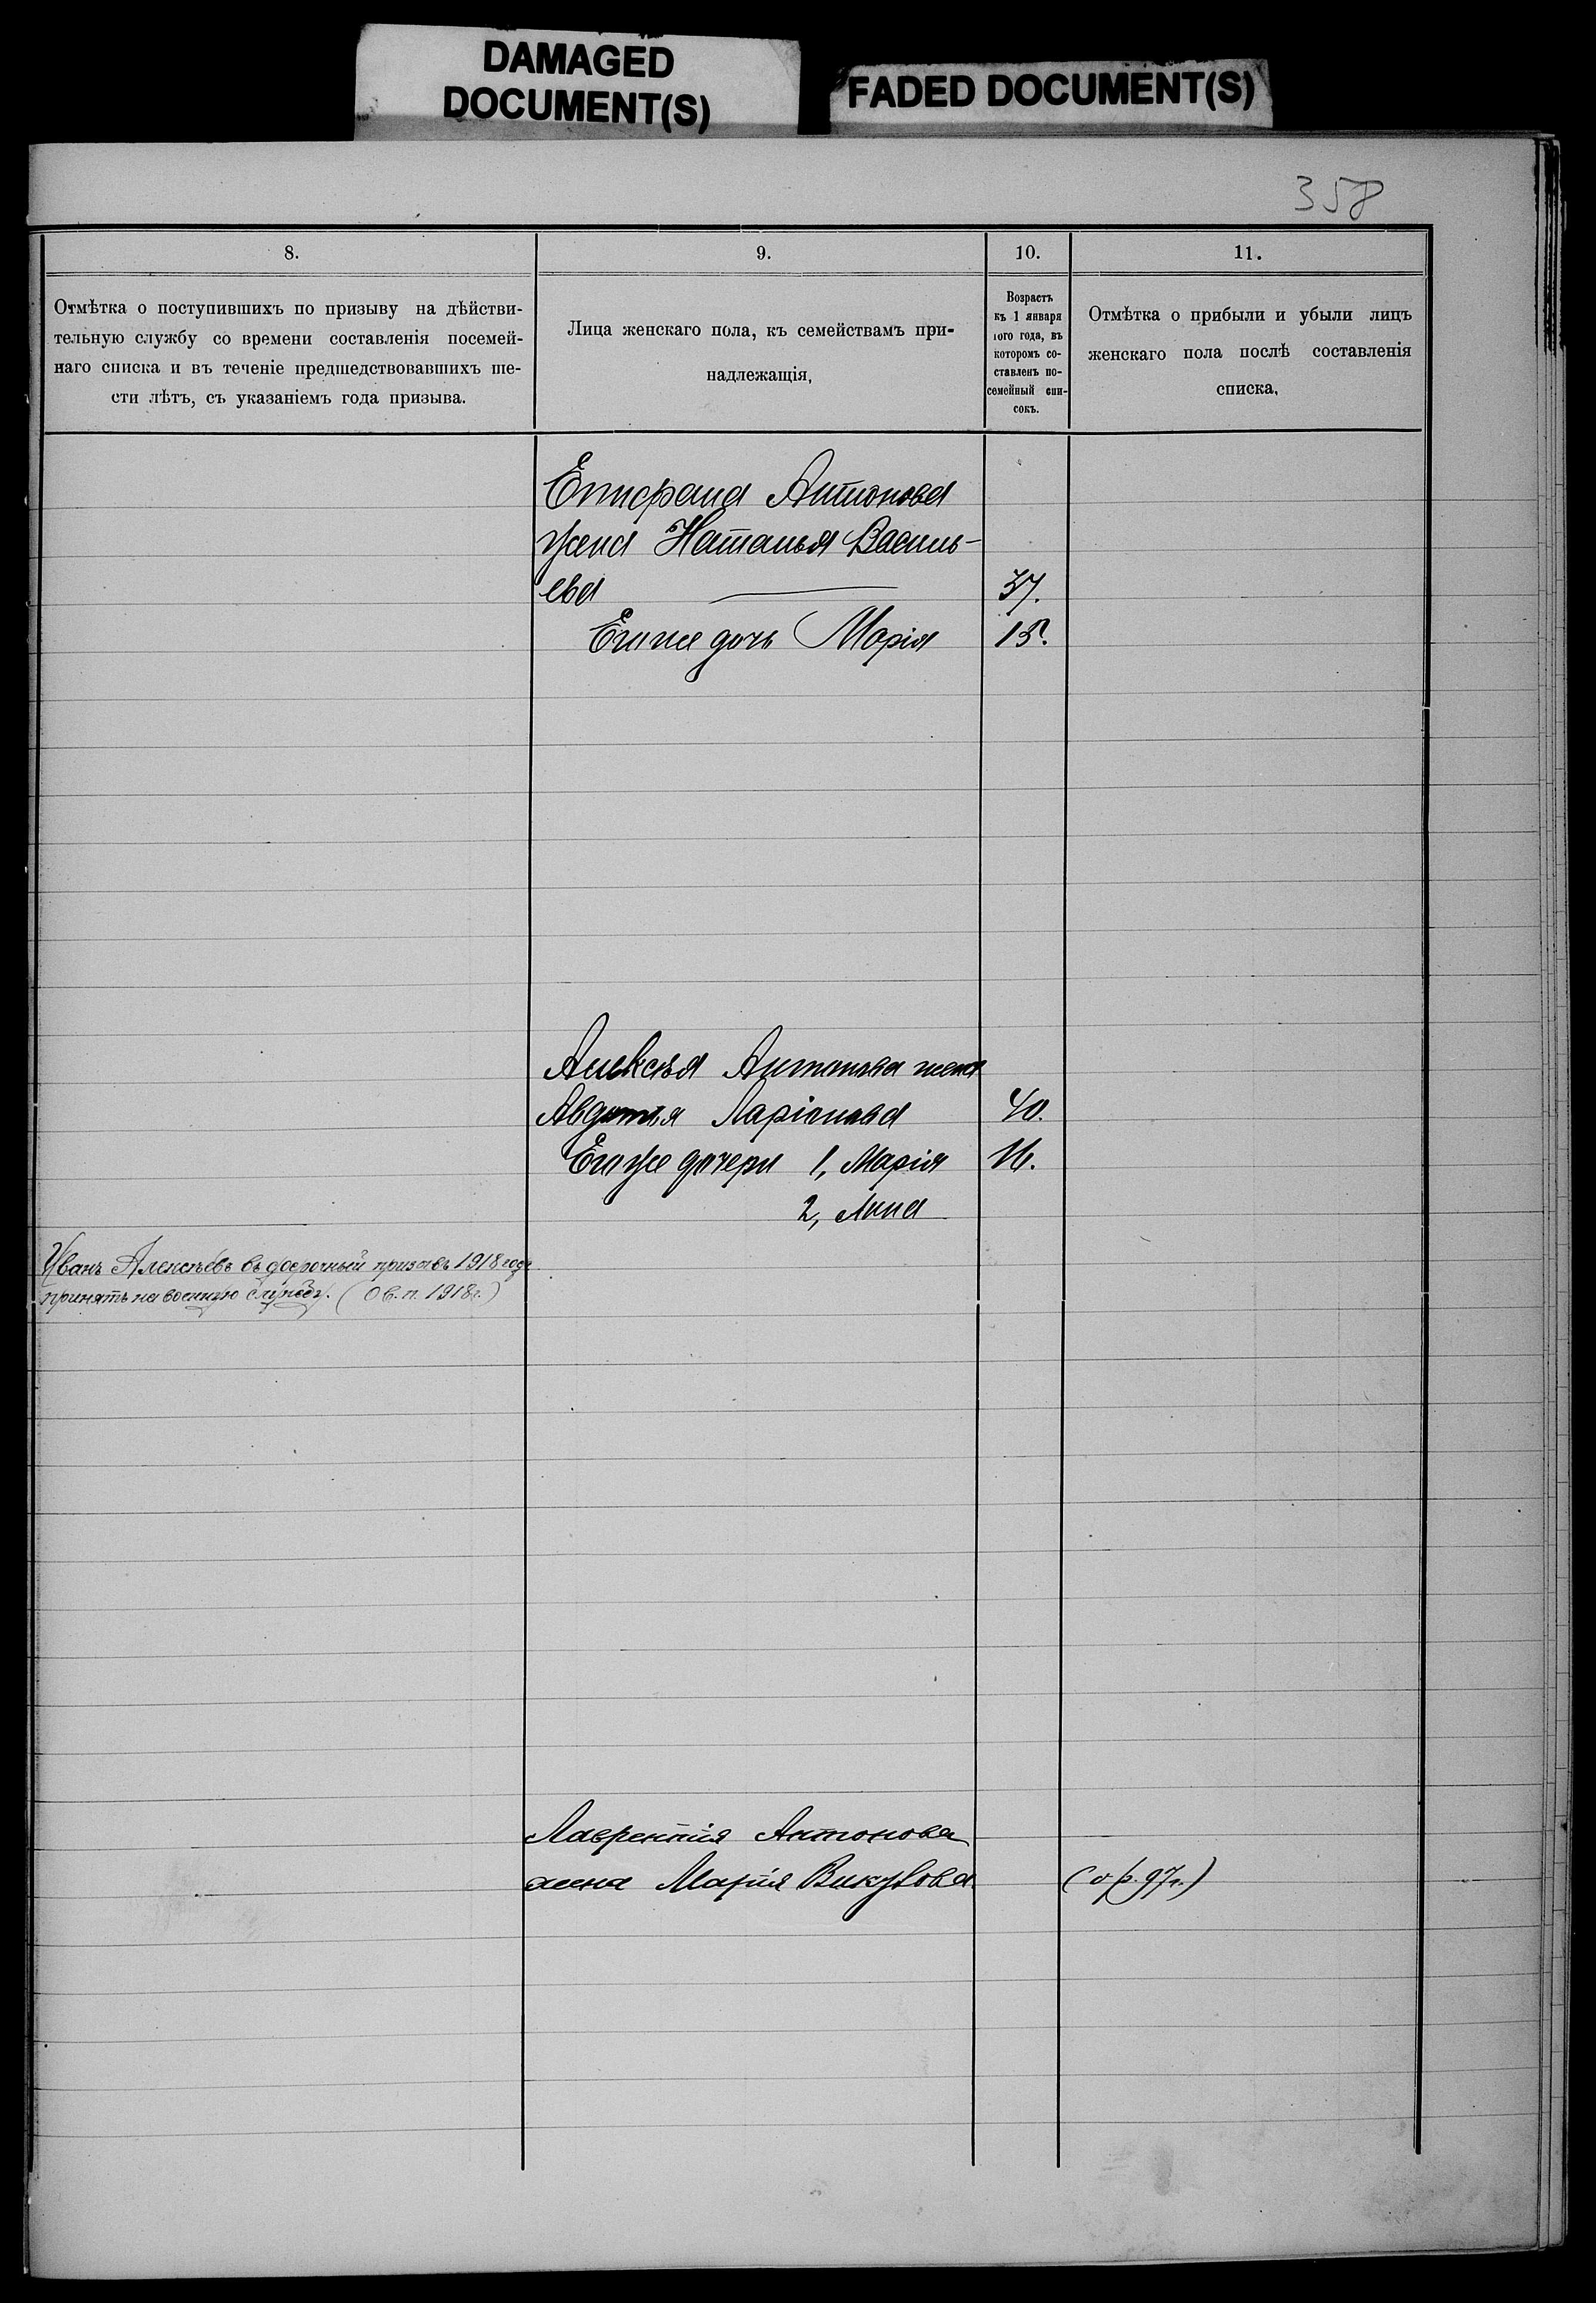 DAMAGED
DOCUMENT(S)
FADED DOCUMENT(S)
358
8.
9.
10.
11.
Отмѣтка о поступившихъ по призыву на дѣйстви-
тельную службу со времени составленія посемей-
наго списка и въ теченіе предшедствовавшихъ ше-
сти лѣтъ, съ указаніемъ года призыва.
Лица женскаго пола, къ семействамъ при-
надлежащія,
Возрастъ
къ 1 января
того года, въ
которомъ со-
ставленъ по-
семейный спи-
сокъ.
Отмѣтка о прибыли и убыли лицъ
женскаго пола послѣ составленія
списка,
Епифана Антонова
жена Наталья Василь-
ева 37.
Его же дочь Марія 15.
Алексѣя Антонова жена
Авдотья Ларіонова 40.
Его же дочери 1, Марія 16.
2, Анна
Иванъ Алексѣевъ въ досрочный призывъ 1918 года
принятъ на военную службу. (О в. п. 1918 г.)
Лаврентія Антонова
жена Марія Викулова (о р. 97 г.)